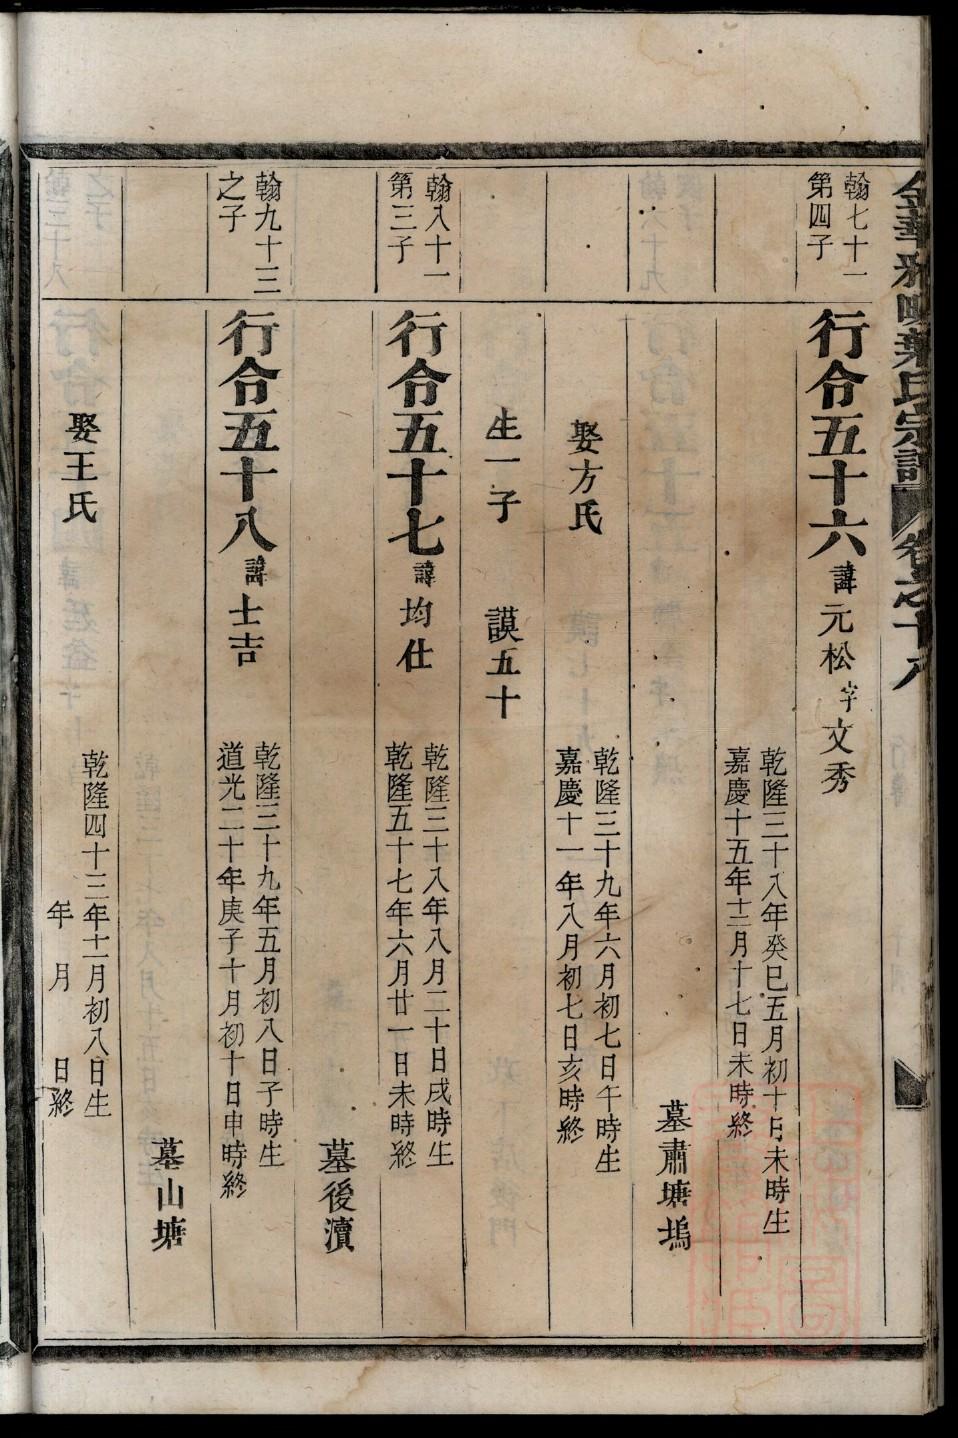 金華雅畈葉氏宗譜 卷之十八
翰七十一
第四子
行令五十六 諱元松 字文秀
乾隆三十八年癸巳五月初十日未時生
嘉慶十五年十二月十七日未時終
墓肅塘塢
娶方氏
乾隆三十九年六月初七日午時生
嘉慶十一年八月初七日亥時終
生一子 謨五十
翰八十一
第三子
行令五十七 諱均仕
乾隆三十八年八月二十日戌時生
乾隆五十七年六月廿一日未時終
墓後瀆
翰九十三
之子
行令五十八 諱士吉
乾隆三十九年五月初八日子時生
道光二十年庚子十月初十日申時終
墓山塘
娶王氏
乾隆四十三年十一月初八日生
年 月 日終